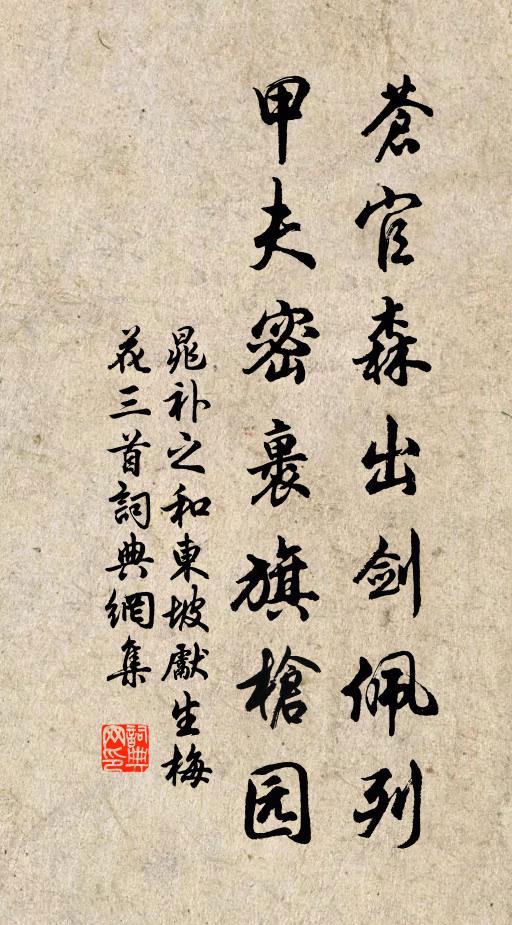 蒼官森出剑佩列
甲夫密裹旗槍园
晁补之和東坡獻生梅
花三首詞典網集
詞典网印